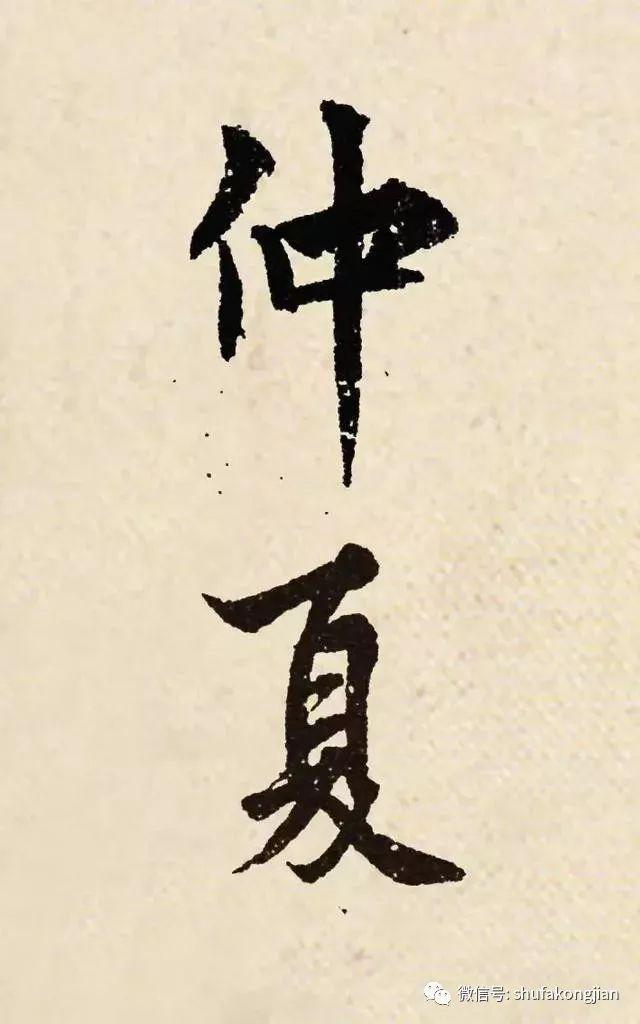 仲夏
微信号: shufakongjian